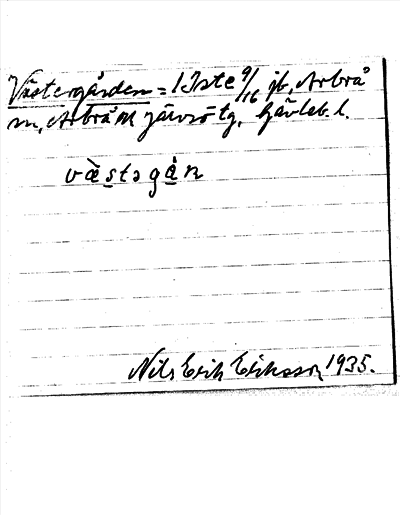 Västergården = 1 Iste 9/16 jb, Arbrå
sn, Arbrå o Järvsö tg, Gävleb. l.
væ̀stəgån
Nils Erik Eriksson 1935.